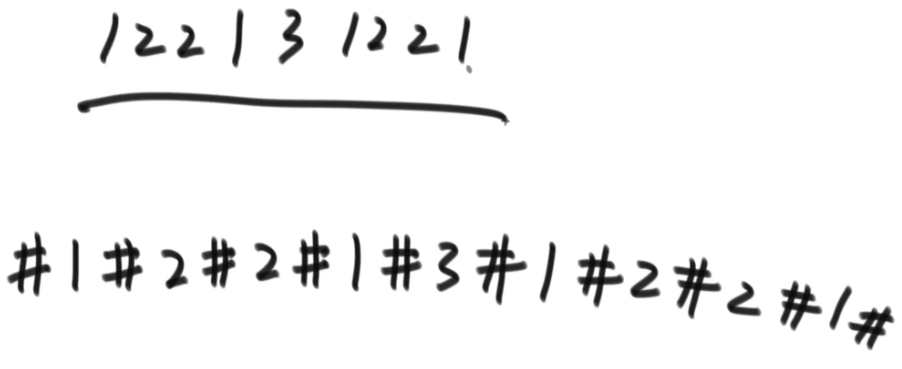 1221 3 1221
#1#2#2#1#3#1#2#2#1#